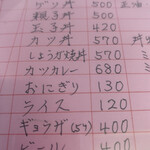 親子丼 500
玉子丼 420
カツ丼 570
しょうが焼丼 570
カツカレー 680
おにぎり 130
ライス 120
ギョウザ(5ヶ) 400
ビール 400